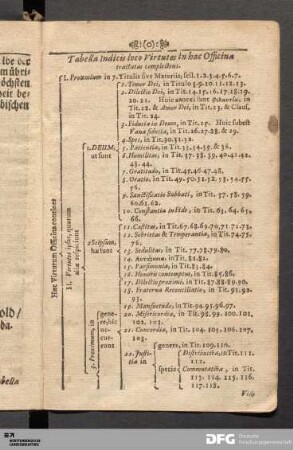 (o)
Tabella Indicis loco Virtutes in hac Officina
tractatas complectens.
I. Proœmium in 7. Titulis sive Materiis; scil. 1.2.3.4.5.6.7.
1. Timor Dei, in Titulo 8.9.10.11.12.13.
2. Dilectio Dei, in Tit. 14.15.16.17.18.19.
20.21.
in Tit. 22. & Amor Dei, in Tit. 23. &
in Tit. 24.
3. Fiducia in Deum, in Tit. 25. Huic subest
Vana fiducia, in Tit. 26.27.28. & 29.
4. Spes, in Tit. 30.31.32.
5. Patientia, in Tit. 33.34.35. & 36.
6. Humilitas, in Tit. 37.38.39.40.41.42.
43.44.
7. Gratitudo, in Tit. 45.46.47.48.
8. Oratio, in Tit. 49.50.51.52.53.54.55.
56.
9. Sanctificatio Sabbati, in Tit. 57.58.59.
60.61.62.
10. Constantia in fide, in Tit. 63.64.65.
66.
1. DEUM,
ut sunt
11. Castitas, in Tit. 67.68.69.70.71.72.73.
12. Sobrietas & Temperantia, in Tit. 74.75.
76.
13. Sedulitas, in Tit. 77.78.79.80.
14. in Tit. 81.82.
15. Parsimonia, in Tit. 83.84.
16. Honoris contemptus, in Tit. 85.86.
2. Seipsum,
habitas
17. Dilectio proximi, in Tit. 87.88.89.90.
18. Fraterna Reconciliatio, in Tit. 91.92.
93.
19. Mansuetudo, in Tit. 94.95.96.97.
20. Misericordia, in Tit. 98.99.100.101.
102. 103.
21. Concordia, in Tit. 104. 105. 106. 107.
108.
22. Justitia
in
genere, in Tit. 109. 110.
specie
Distributiva, in Tit. 111.
112.
Commutativa, in Tit.
113. 114. 115. 116.
117. 118.
3. Proximum, in
genere, hic
concurrunt
II. Virtutes ipsas, quarum
aliæ respiciunt
Hæc Virtutum Officina continet
bella
DFG
Deutsche
Forschungsgemeinschaft